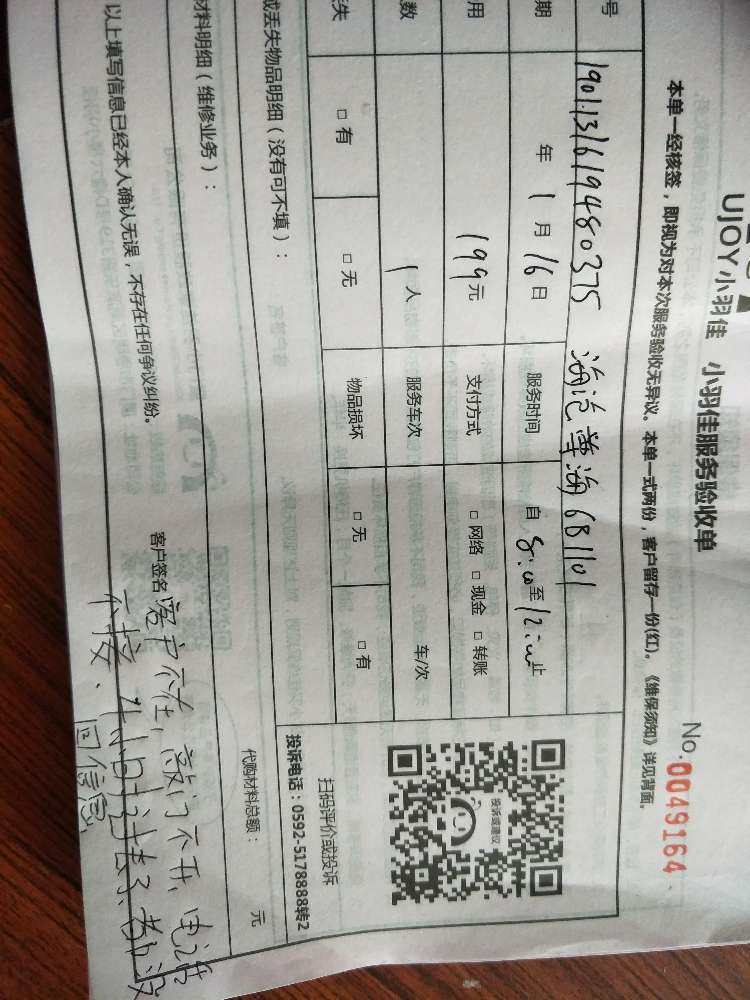 UJOY小羽佳 小羽佳服务验收单
No.0049164
本单一经核签，即视为对本次服务验收无异议。本单一式两份，客户留存一份(红)。《维保须知》详见背面。
号 190113161948037S
6B1101
期 年 1 月 16 日 服务时间 自 8:00 至 12:00 止
用 199 元 支付方式 □ 网络 □ 现金 □ 转账
数 1 人 服务车次 车/次
失 □ 有 □ 无 物品损坏 □ 无 □ 有
投诉或建议
扫码评价或投诉
投诉电话：0592-5178888转2
或丢失物品明细（没有可不填）：
材料明细（维修业务）：
代购材料总额： 元
以上填写信息已经本人确认无误，不存在任何争议纠纷。
客户签名 客户不在，敲门不开、电话
不接、都没
回信息